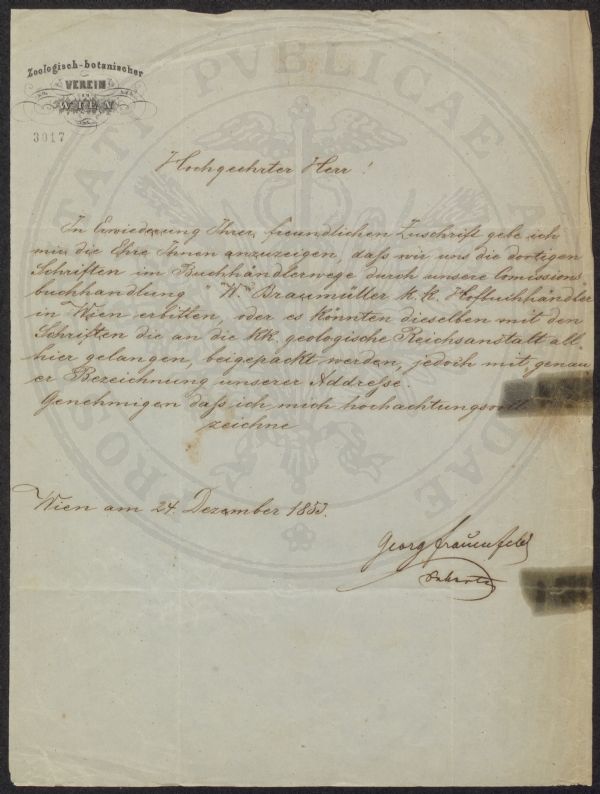 Zoologisch-botanischer
VEREIN
IN
WIEN
3017
Hochgeehrter Herr!
In Erwiederung Ihrer freundlichen Zuschrift gebe ich
mir die Ehre Ihnen anzuzeigen, daß wir uns die dortigen
Schriften im Buchhändlerwege durch unsere Comissions
buchhandlung "W. Braumüller k. k. Hofbuchhändler
in Wien erbitten, oder es könnten dieselben mit den
Schriften die an die kk. geologische Reichsanstalt all
hier gelangen, beigepackt werden, jedoch mit genau
er Bezeichnung unserer Addreße.
Genehmigen daß ich mich hochachtungsvoll
zeichne
Wien am 24. Dezember 1853.
Georg Frauenfeld